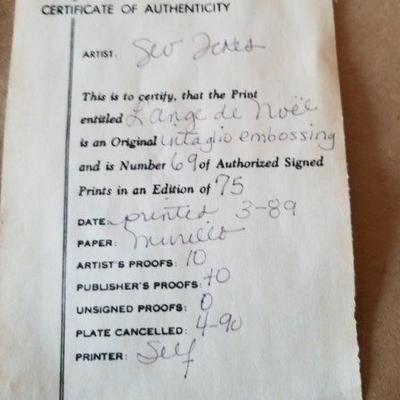 CERTIFICATE OF AUTHENTICITY
ARTIST:
This is to certify, that the Print
entitled L'ange de Noël
is an Original intaglio embossing
and is Number 69 of Authorized Signed
Prints in an Edition of 75
DATE: printed 3-89
PAPER: Murillo
ARTIST'S PROOFS: 10
PUBLISHER'S PROOFS: 10
UNSIGNED PROOFS: 0
PLATE CANCELLED: 4-90
PRINTER: Self